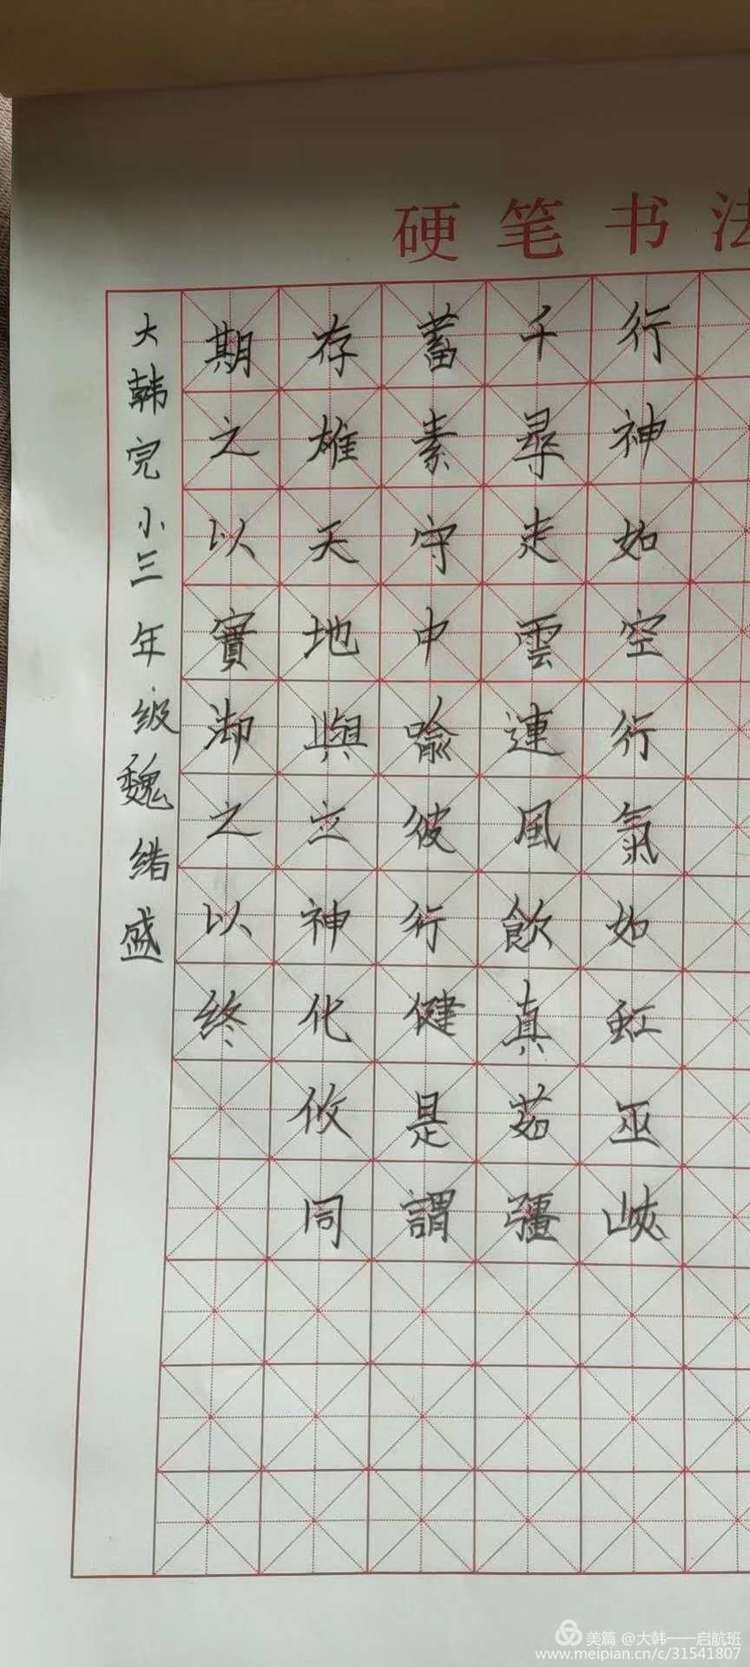 硬笔书法
行神如空行氣如虹巫峽
千尋走雲連風飲真茹彊
蓄素守中喻彼行健是謂
存雄天地與立神化攸同
期之以實御之以終
大韩完小三年级魏绪盛
美篇 @大韩——启航班
www.meipian.cn/c/31541807